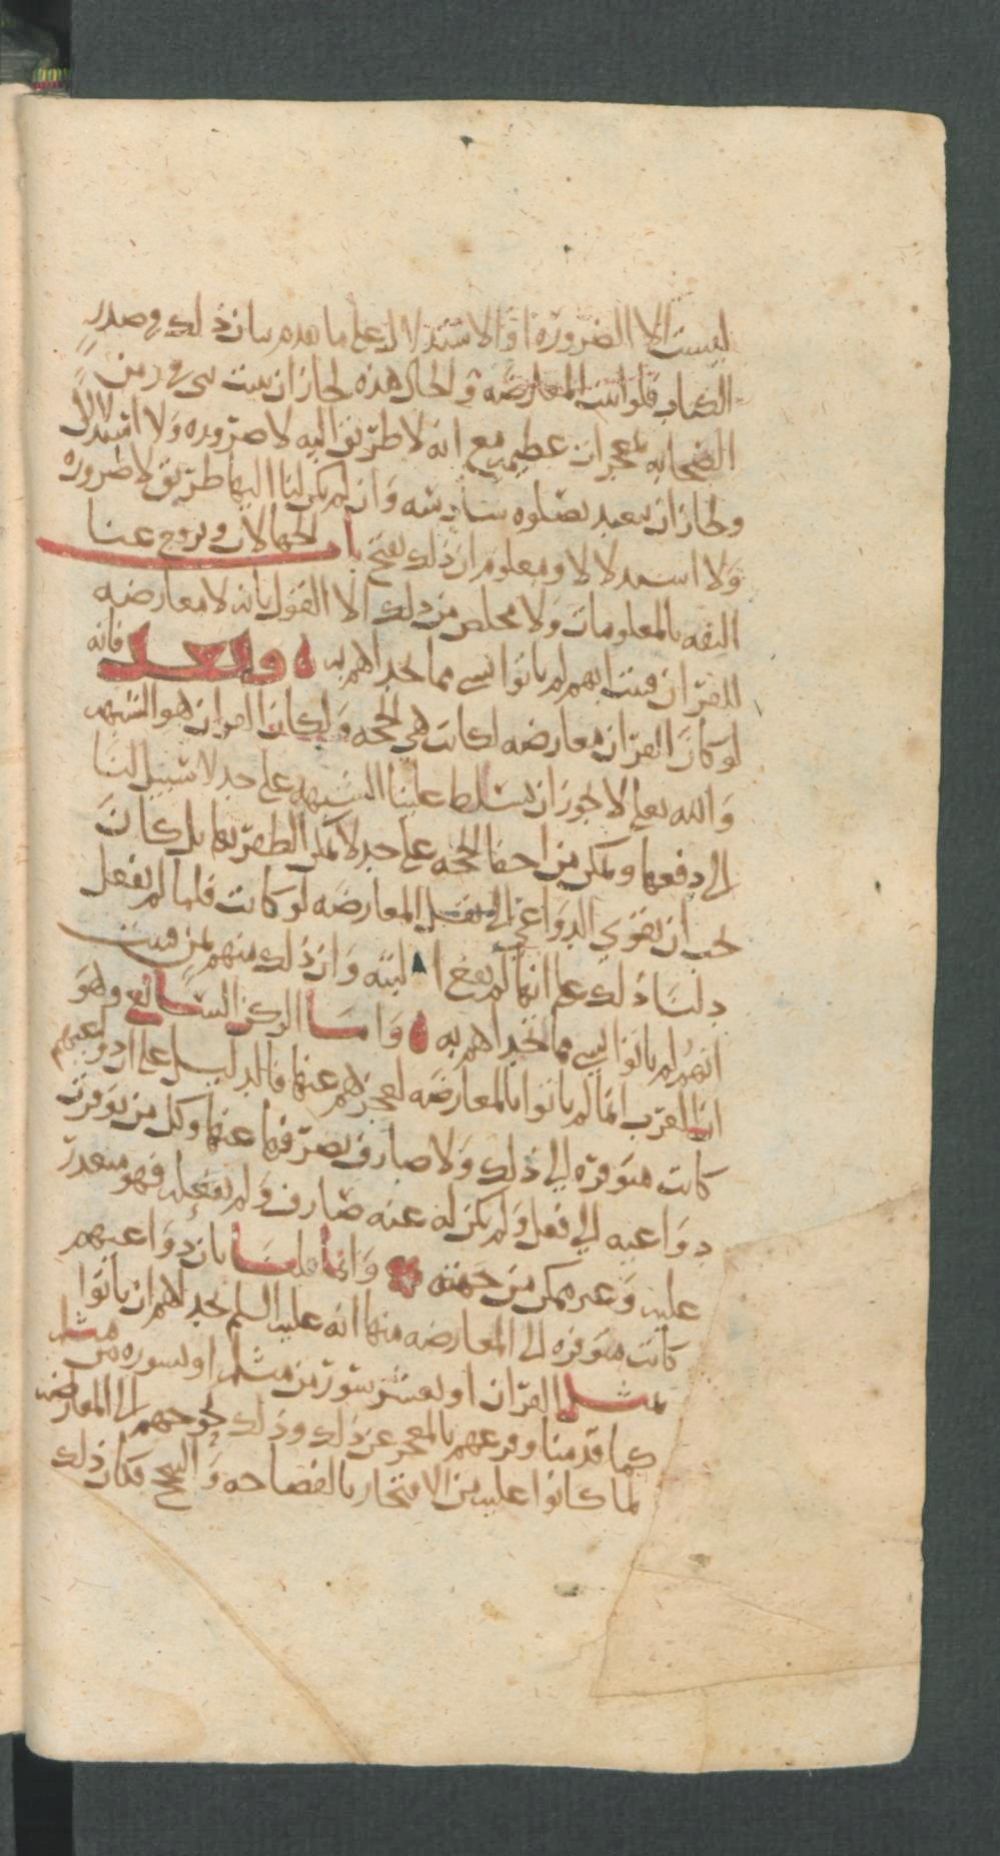 ليست الا الضرورة او الاستدلال على ما تقدم بيان ذلك في صدر
الكتاب فلو اتت المعارضة والحال هذه لجاز ان نبت نبي في زمن
الصحابه بمعجزات عظيمه مع انه لا طريق اليه لا ضرورة ولا استدلالا
ولجاز ان سعيد بصلوه سادسه وان لم يكن لنا اليها طريق لا ضرورة
ولا استدلالا ومعلوم ان ذلك يفتح باب الجهالات ويزوح عنا
الثقه بالمعلومات ولا مخلص من ذلك الا القول بانه لا معارضه
للقران فثبت انهم لم ياتوا بشي مما تحداهم به ه وبعد فانه
لو كان للقران معارضه لكانت هي الحجه ولكان القران هو الشبهه
والله تعالى لا يجوز ان يسلط علينا الشبهه على حد لا سبيل لنا
الى دفعها ويمكن من اخفا الحجه على حد لا يمكن الظفر بها بل كان
يجب ان تقوي الدواعي الى نقل المعارضه لو كانت فلما لم يفعل
دلنا ذلك على انها لم تقع البته وان ذلك منهم لم يقع فثبت
انهم لم ياتوا بشي مما تحداهم به ه واما الركن السابع وهو
ان العرب انما لم ياتوا بالمعارضه لعجزهم عنها فالدليل على ان دواعيهم
كانت متوفره الى ذلك ولا صارف يصرفها عنها وكل من توفرت
دواعيه الى فعل ولم يكن له عنه صارف ولم يفعله فهو متعذر
عليه وغير ممكن من جهته ه وانما قلنا بان دواعيهم
كانت متوفره الى المعارضه منها انه عليه السلم تحداهم ان ياتوا
بمثل القران او بعشر سور من مثله او بسوره من مثله
كما قدمنا وقرعهم بالعجز عن ذلك وذلك يحوجهم الى المعارضه
لما كانوا عليه من الافتخار بالفصاحه والتبجح فكان ذلك